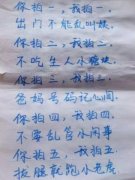 你拍一，我拍一，
出门不能乱叫娘，
你拍二，我拍二，
不吃生人小糖块，
你拍三，我拍三，
爸妈号码记心间，
你拍四，我拍四，
不要乱管小闲事
你拍五，我拍五，
拔腿就跑小老虎